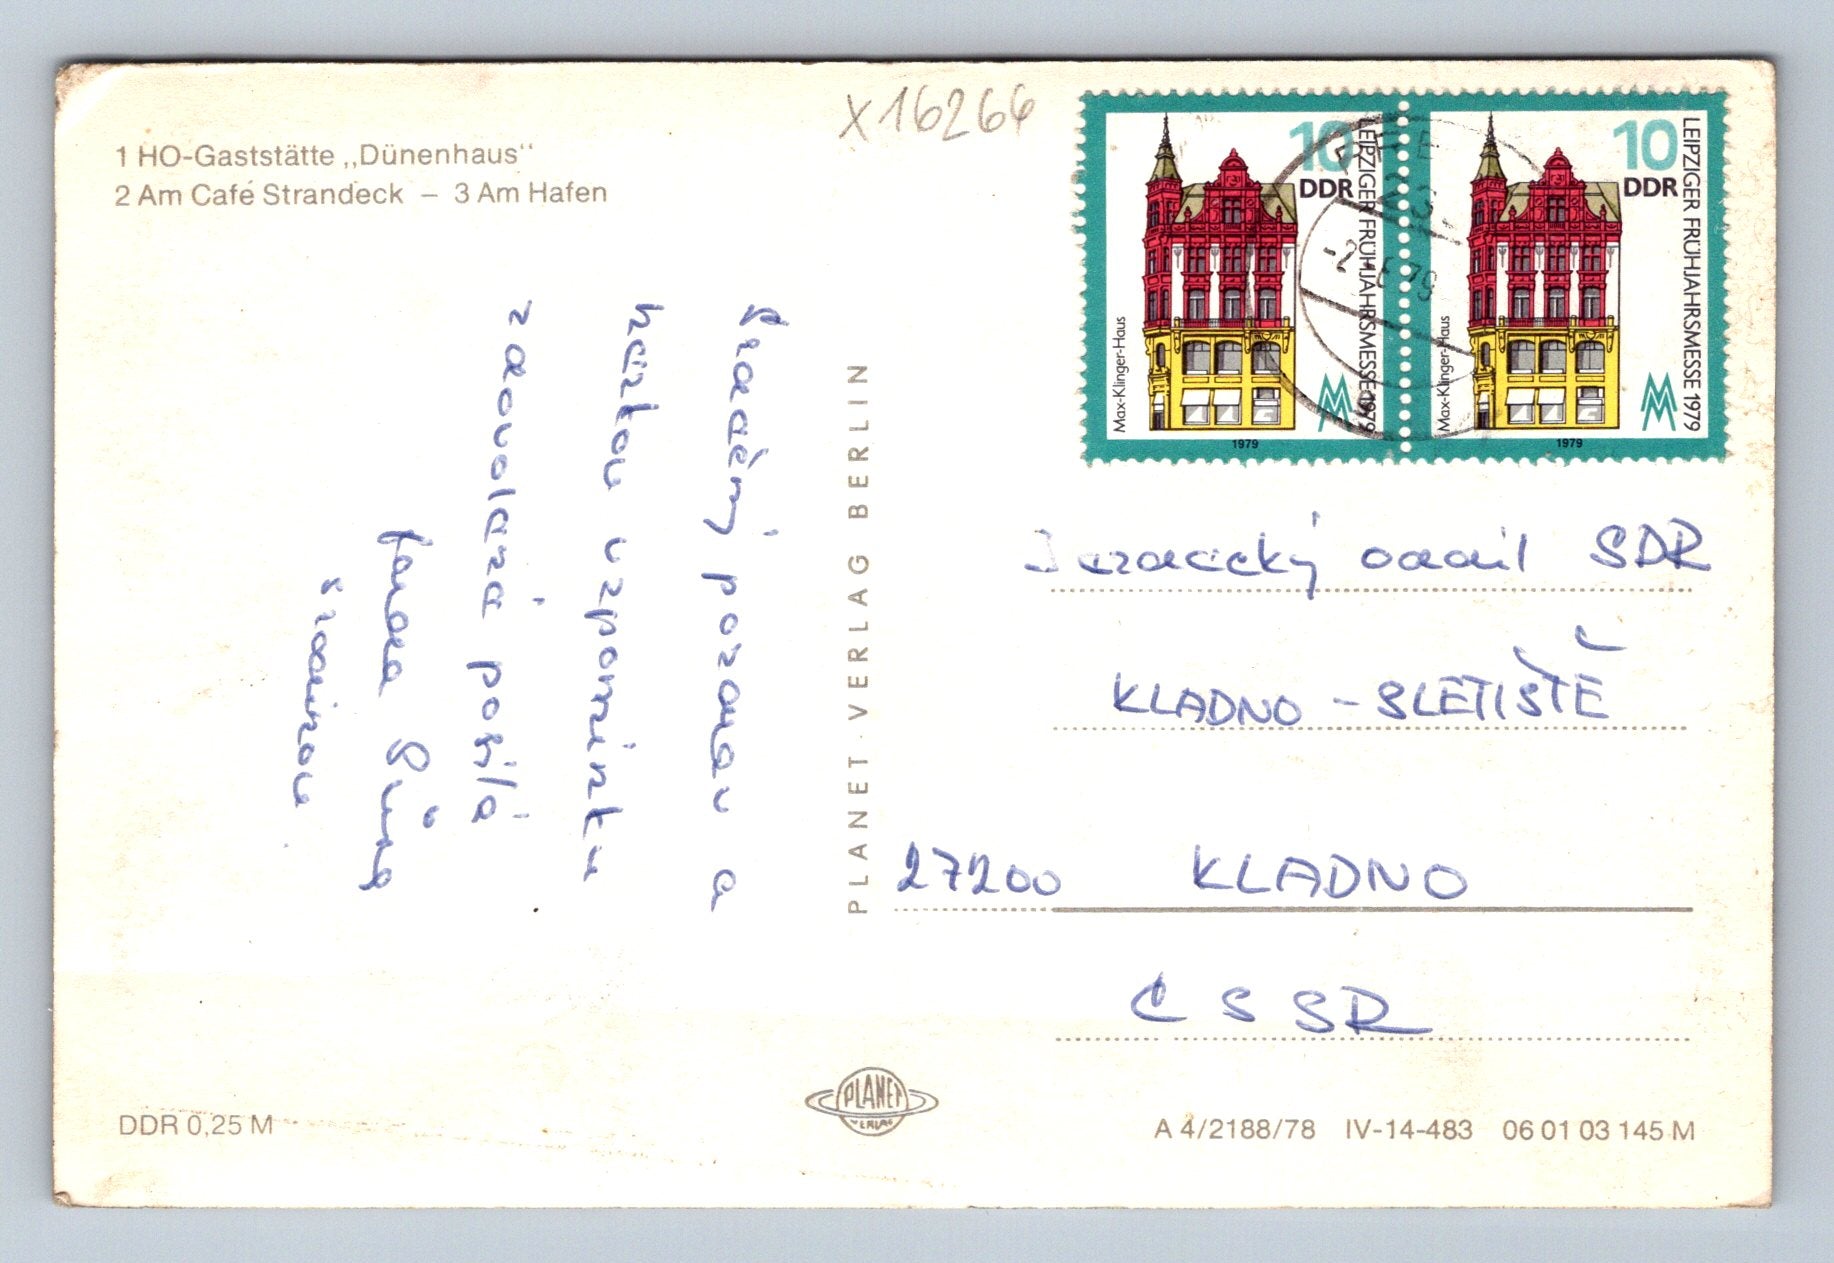 X16266
1 HO-Gaststätte „Dünenhaus“
2 Am Café Strandeck – 3 Am Hafen
10
DDR
LEIPZIGER FRÜHJAHRSMESSE 1979
Max-Klinger-Haus
1979
10
DDR
LEIPZIGER FRÜHJAHRSMESSE 1979
Max-Klinger-Haus
1979
-2.-6.79
Srdečný pozdrav a
hezkou vzpomínku
z dovolené posílá
rodinou
PLANET-VERLAG BERLIN
oddíl SDR
KLADNO - SLETIŠTĚ
27200 KLADNO
ČSSR
PLANET
VERLAG
DDR 0,25 M
A 4/2188/78 IV-14-483 06 01 03 145 M